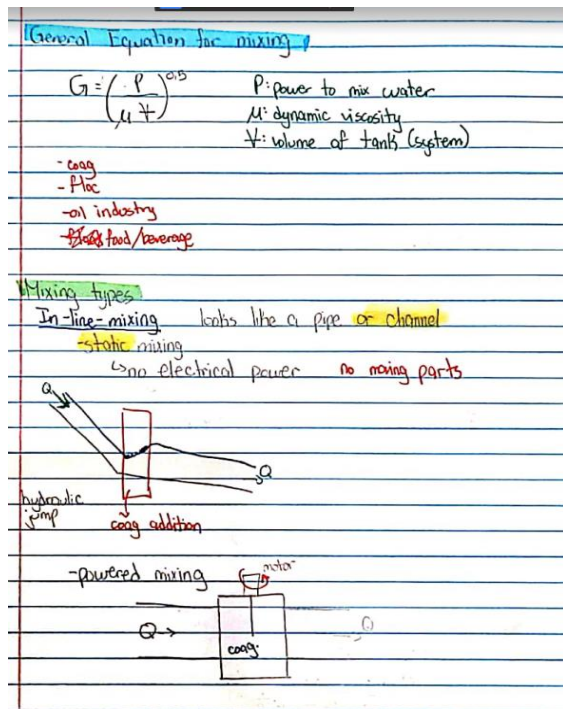 General Equation for mixing
G = (P / μ V)^0.5
P: power to mix water
μ: dynamic viscosity
V: volume of tank (system)
- coag
- floc
- oil industry
- food/beverage
Mixing types
In-line-mixing looks like a pipe or channel
- static mixing
↳ no electrical power no moving parts
Q
Q
hydraulic
jump
coag addition
- powered mixing
motor
Q →
Q
coag.